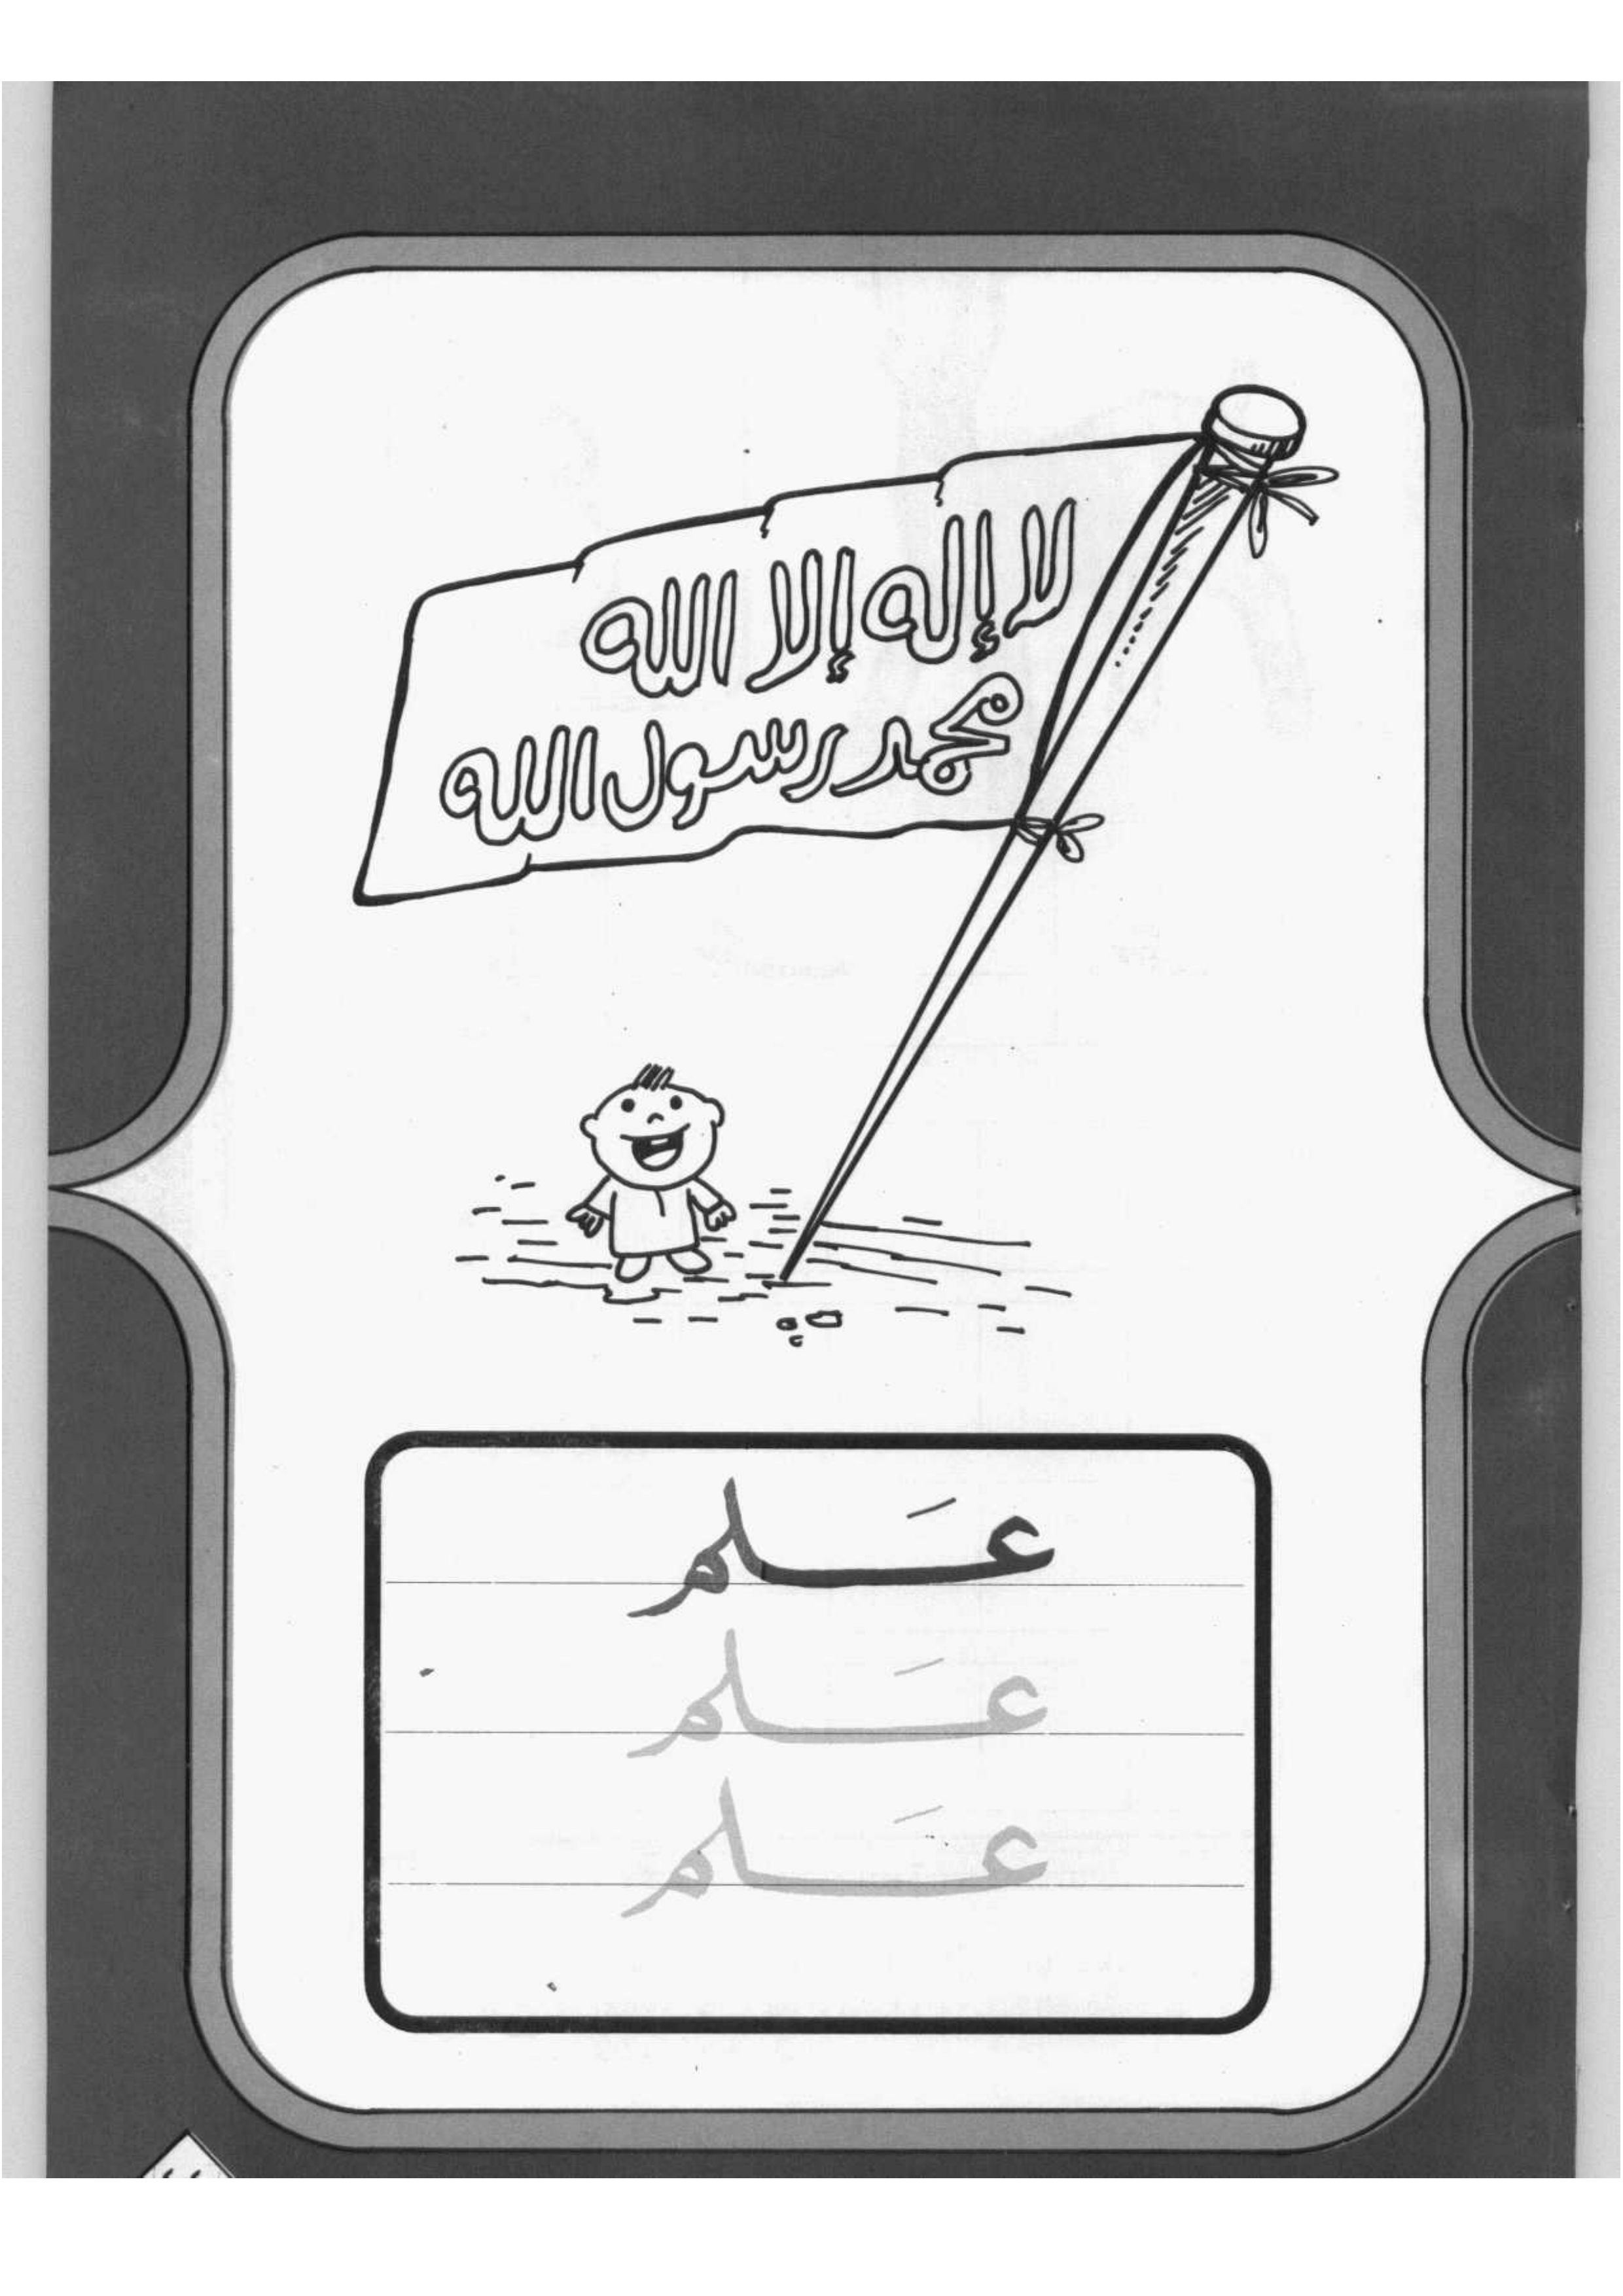 لا إله إلا الله
محمد رسول الله
عَلم
عَلم
عَلم